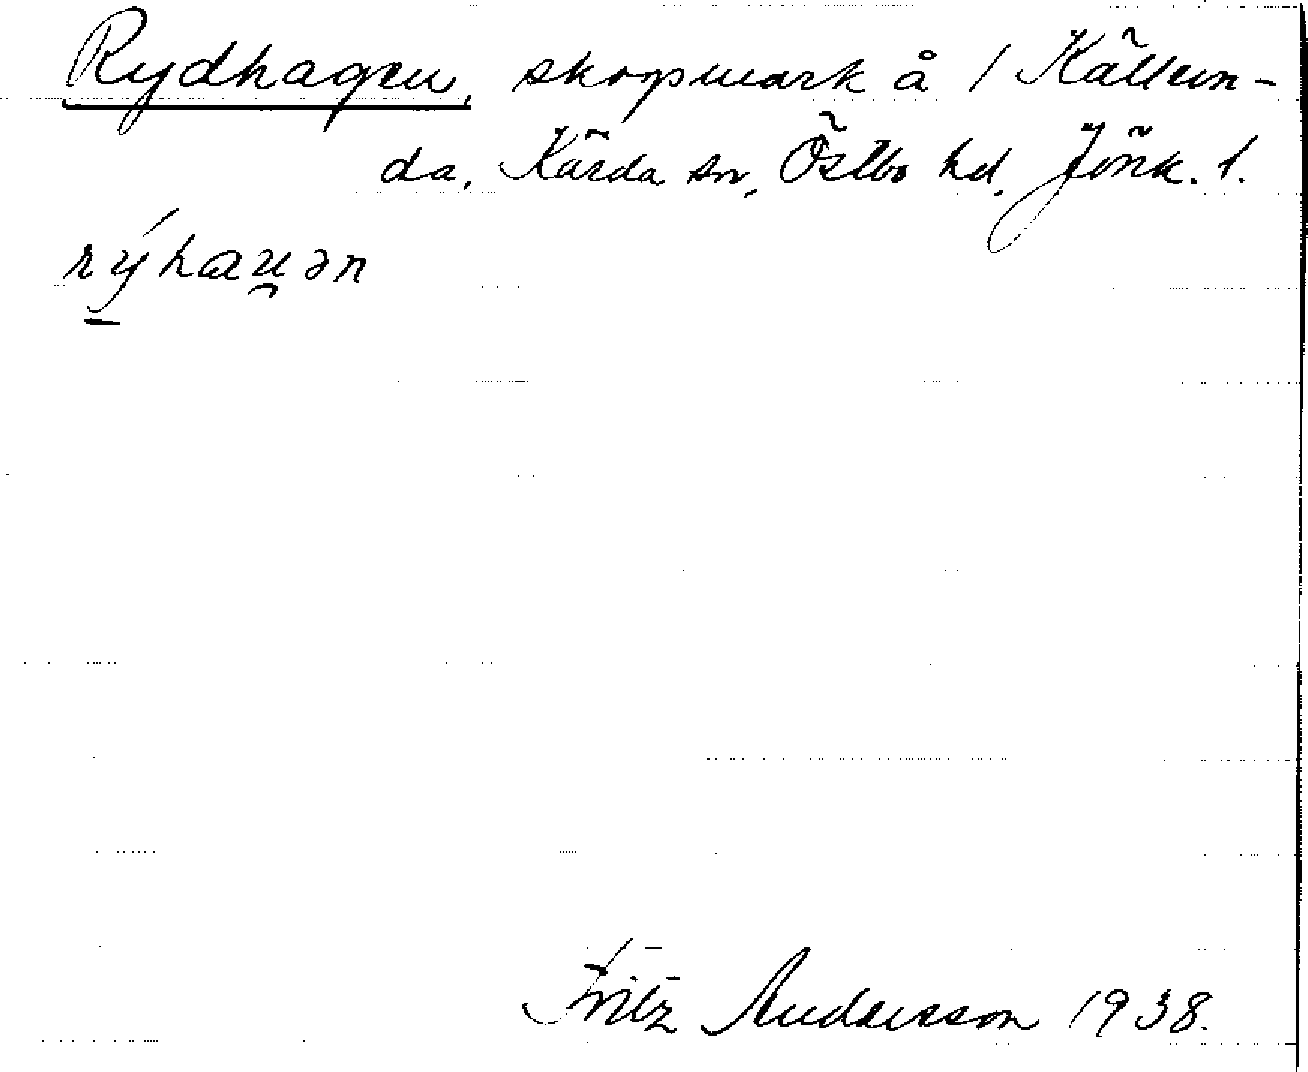 Rydhagen, skogsmark å 1 Källun-
da, Kärda sn, Östbo hd, Jönk. l.
rýhau̯ən
Fritz Andersson 1938.